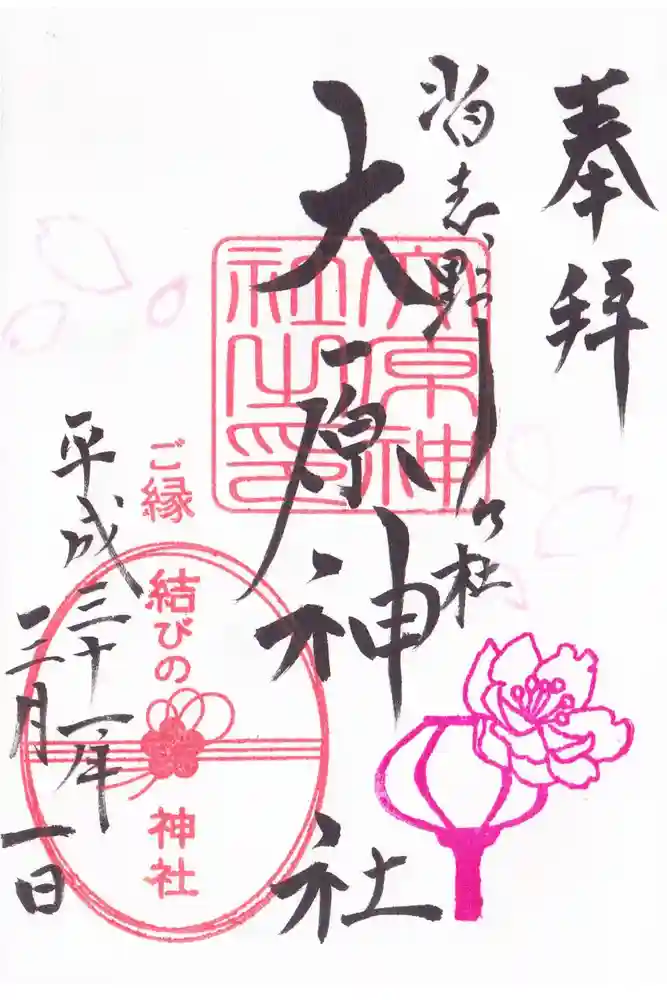 奉拝
習志野 杜
大原神社
大原神
社之印
ご縁
結びの
神社
平成三十一年
三月一日